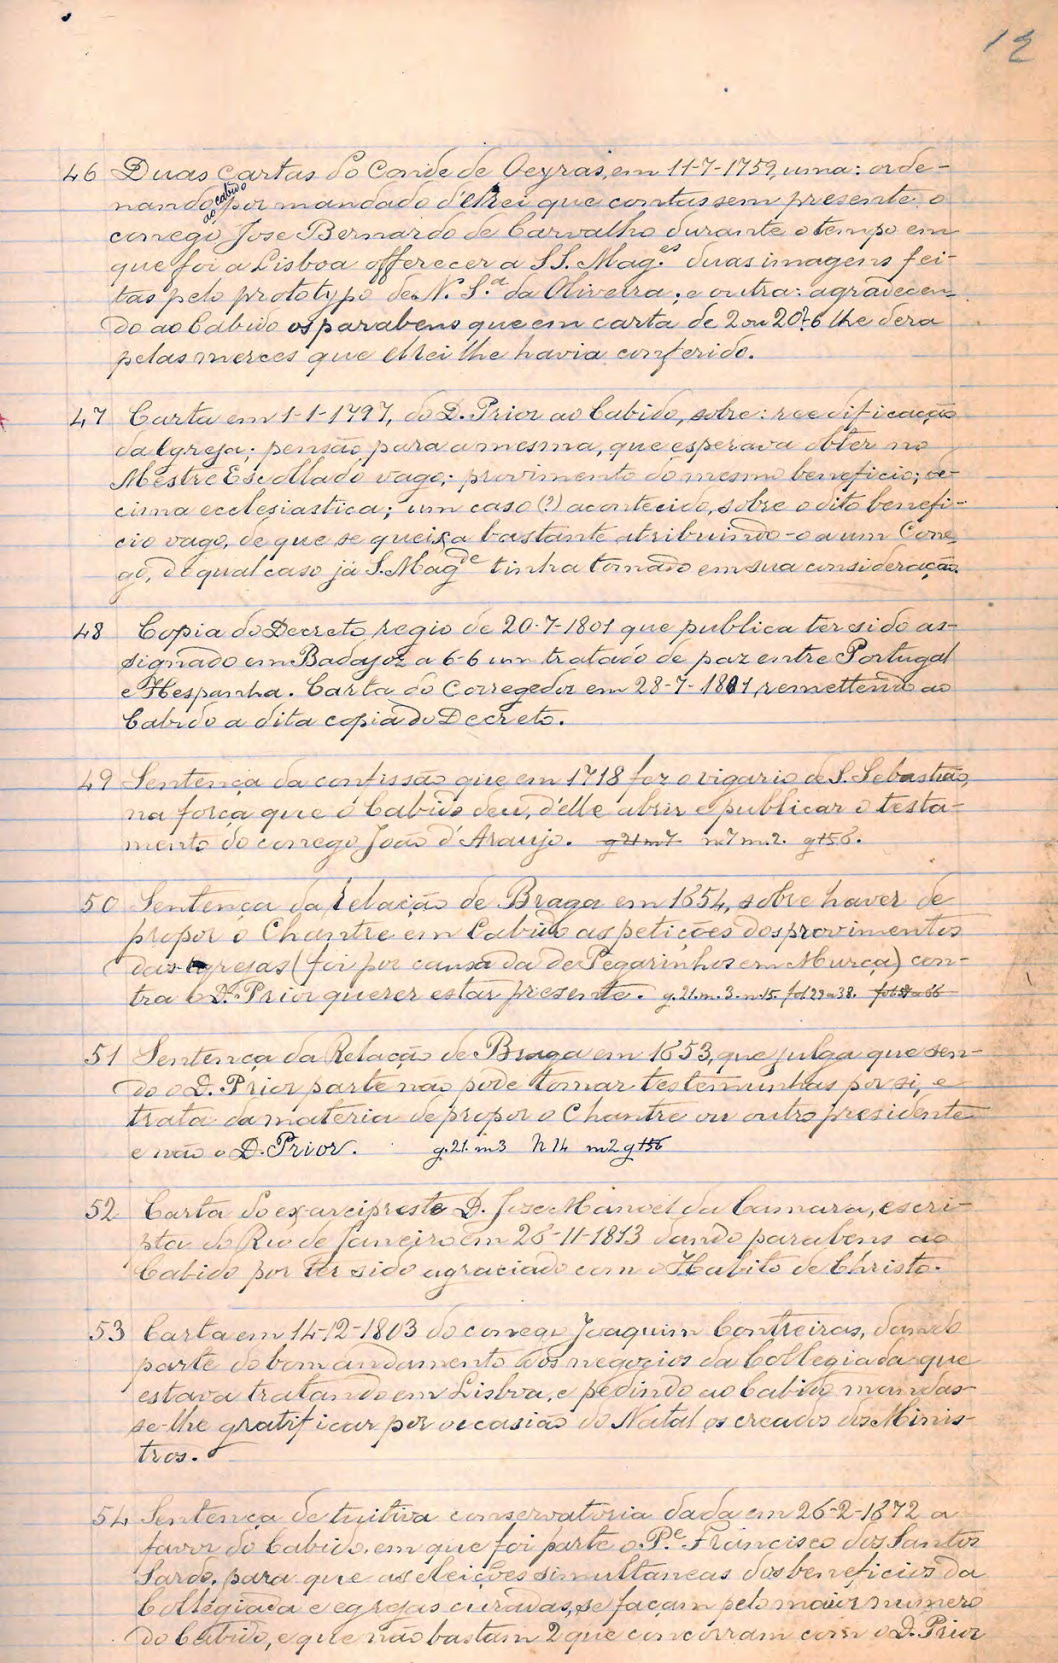 12
46 Duas cartas do Conde de Oeyras, em 11-7-1759, uma: orde-
nando ao cabido por mandado d'elrei que contassem presente o
conego Jose Bernardo de Carvalho durante o tempo em
que foi a Lisboa offerecer a SS. Mag.es duas imagens fei-
tas pelo prototypo de N. S.a da Oliveira; e outra: agradecen-
do ao Cabido os parabens que em carta de 2 ou 20?-6 lhe dera
pelas merces que elrei lhe havia conferido.
47 Carta em 1-1-1797, do D. Prior ao Cabido, sobre: reedificação
da Igreja; pensão para a mesma, que esperava obter no
Mestre Escollado vago; provimento do mesmo beneficio; de-
cima ecclesiastica; um caso (?) acontecido, sobre o dito benefi-
cio vago, de que se queixa bastante attribuindo-o a um Cone-
go, do qual caso já S. Magde tinha tomado em sua consideração.
48 Copia do Decreto regio de 20-7-1801 que publica ter sido as-
signado em Badajoz a 6-6 um tratado de paz entre Portugal
e Hespanha. Carta do Corregedor em 28-7-1801, remettendo ao
Cabido a dita copia do Decreto.
49 Sentença da confissão que em 1718 fez o vigario de S. Sebastião,
na força que o Cabido deu, d'elle abrir e publicar o testa-
mento do conego João d'Araujo. g 21 m 7 n.7 m.2. g 156.
50 Sentença da relação de Braga em 1654, sobre haver de
propor o Chantre em Cabido as petições dos provimentos
das Igrejas (foi por causa da de Pegarinhos em Murça) con-
tra o D. Prior querer estar presente. g. 21. m. 3. n. 15. fol 29 a 38.
51 Sentença da Relação de Braga em 1653, que julga que sen-
do o D. Prior parte não pode tomar testemunhas por si, e
trata da materia de propor o Chantre ou outro presidente
e não o D. Prior. g. 21. m 3 n 14 m 2 g 156
52 Carta do ex arcipreste D. Jose Manoel da Camara, escri-
pta do Rio de Janeiro em 26-11-1813 dando parabens ao
Cabido por ter sido agraciado com o Habito de Christo.
53 Carta em 14-12-1803 do conego Joaquim Contreiras, dando
parte do bom andamento dos negocios da Collegiada que
estava tratando em Lisboa, e pedindo ao Cabido mandas-
se-lhe gratificar por occasião do Natal os creados dos Minis-
tros.
54 Sentença de tuitiva conservatoria dada em 26-2-1672 a
favor do Cabido, em que foi parte o P.e Francisco dos Santos
Sardo, para que as eleições simultaneas dos beneficios da
Collegiada e egrejas curadas, se façam pelo maior numero
do Cabido, e que não bastam 2 que concorram com o D. Prior